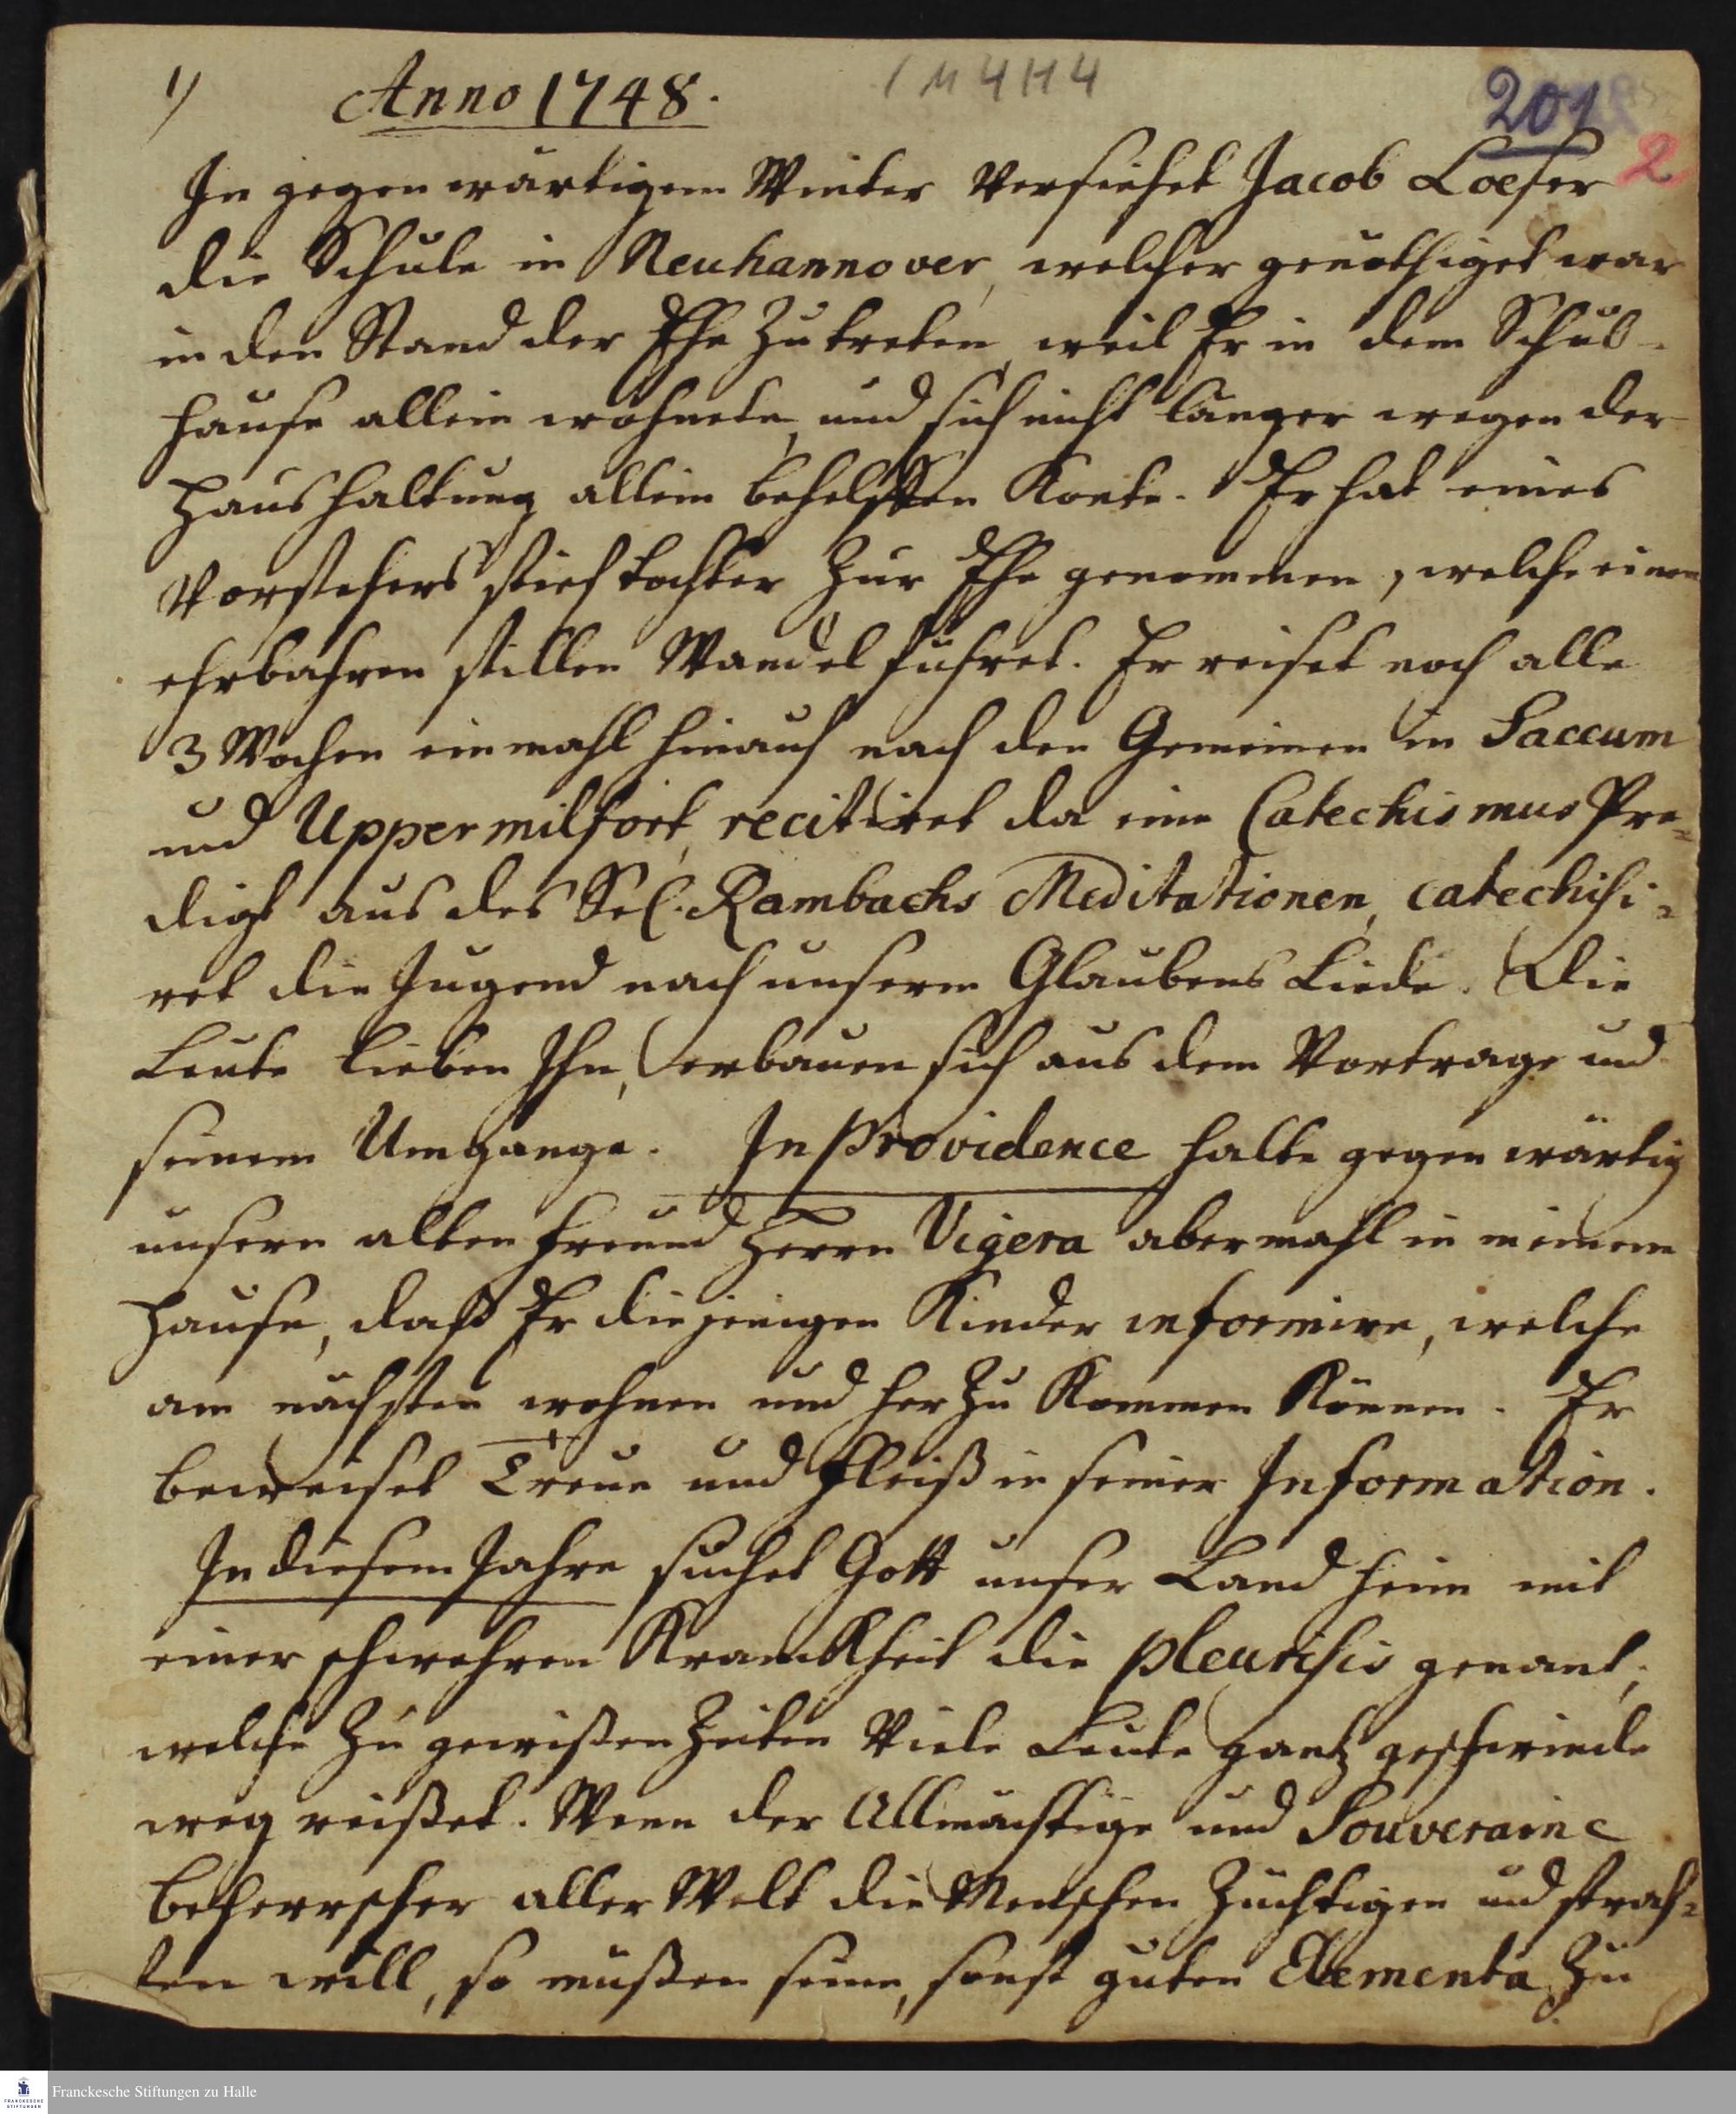 1) Anno 1748. 1 M 4 H 4 201
2
In gegenwärtigem Winter versiehet Jacob Loeser
die Schule in Neuhannover, welcher genöthiget war
in den Stand der Ehe zu treten, weil Er in dem Schul-
hause allein wohnete, und sich nicht länger wegen der
Haushaltung allein behelffen konte. Er hat eines
Vorstehers stieftochter zur Ehe genommen, welche einen
ehrbahren stillen Wandel führet. Er reiset noch alle
3 Wochen ein mahl hinauf nach den Gemeinen in Saccum
und Uppermilfort, recitiret da eine Catechismus Pre-
digt aus des Sel. Rambachs Meditationen, catechisi-
ret die Jugend nach unserm Glaubens Liede. Die
Leute lieben Ihn, erbauen sich aus dem Vortrage und
seinem Umgange. In Providence halte gegenwärtig
unsern alten Freund Herrn Vigera abermahl in meinem
Hause, daß Er diejenigen Kinder informire, welche
am nächsten wohnen und herzu kommen können. Er
beweiset Treue und Fleiß in seiner Information.
In diesem Jahre suchet Gott unser Land heim mit
einer schwehren Kranckheit die pleurisis genant,
welche zu gewißen Zeiten viele Leute gantz geschwinde
weg reißet. Wenn der Allmächtige und Souveraine
Beherrscher aller Welt die Menschen züchtigen und straf-
fen will, so müßen seine, sonst guten Elementa zu
Franckesche Stiftungen zu Halle
FRANCKESCHE
STIFTUNGEN